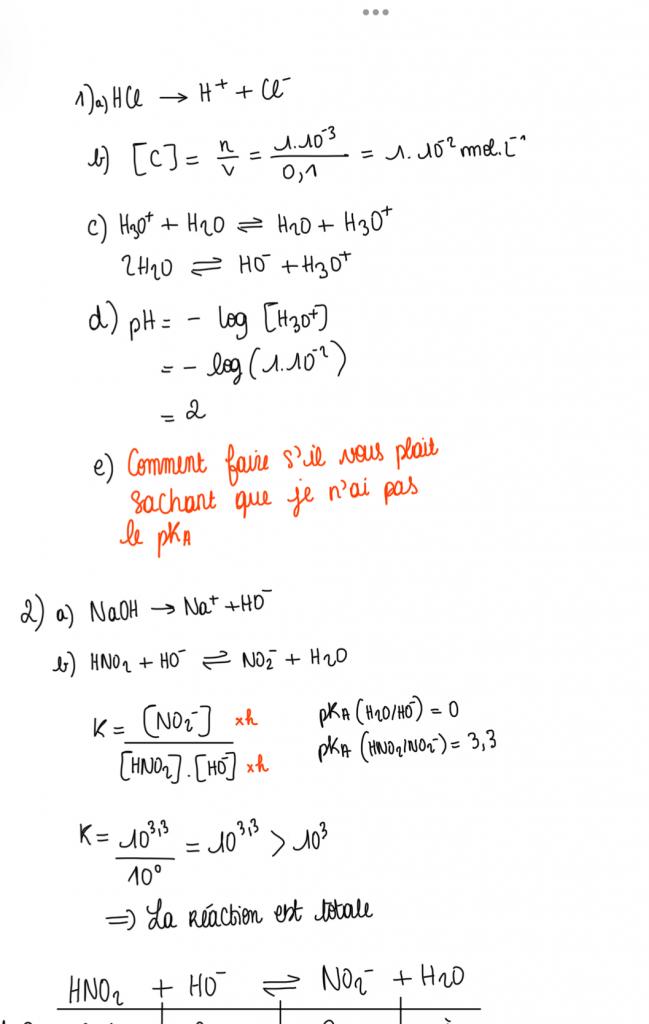 1) a) HCl → H⁺ + Cl⁻
b) [C] = n/v = 1.10⁻³/0,1 = 1.10⁻² mol.L⁻¹
c) H₃O⁺ + H₂O ⇌ H₂O + H₃O⁺
2H₂O ⇌ HO⁻ + H₃O⁺
d) pH = - log [H₃O⁺]
= - log (1.10⁻²)
= 2
e) Comment faire s'il vous plait
sachant que je n'ai pas
le pKA
2) a) NaOH → Na⁺ + HO⁻
b) HNO₂ + HO⁻ ⇌ NO₂⁻ + H₂O
K = [NO₂⁻] xh / [HNO₂].[HO⁻] xh
pKA (H₂O/HO⁻) = 0
pKA (HNO₂/NO₂⁻) = 3,3
K = 10^3,3/10⁰ = 10^3,3 > 10³
=) La réaction est totale
HNO₂ + HO⁻ ⇌ NO₂⁻ + H₂O